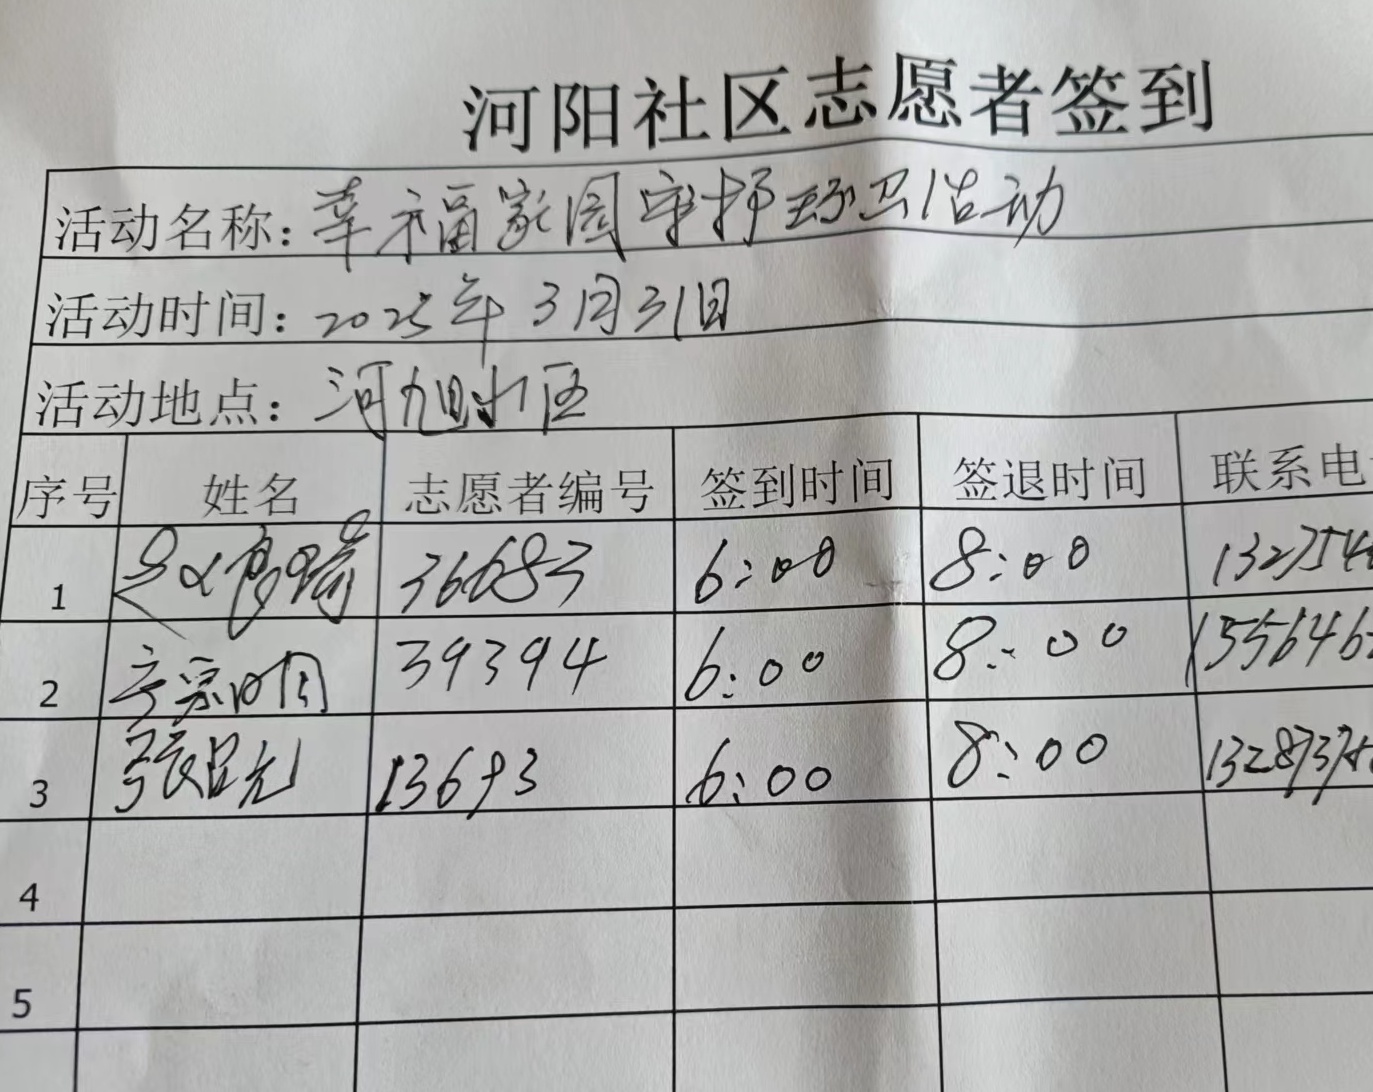 河阳社区志愿者签到
活动名称：幸福家园守护环卫活动
活动时间：2025年3月31日
活动地点：河旭小区
序号 姓名 志愿者编号 签到时间 签退时间 联系电
1 36683 6:00 8:00 1323544
2 39394 6:00 8:00 155646
3 张吕光 13693 6:00 8:00
4
5